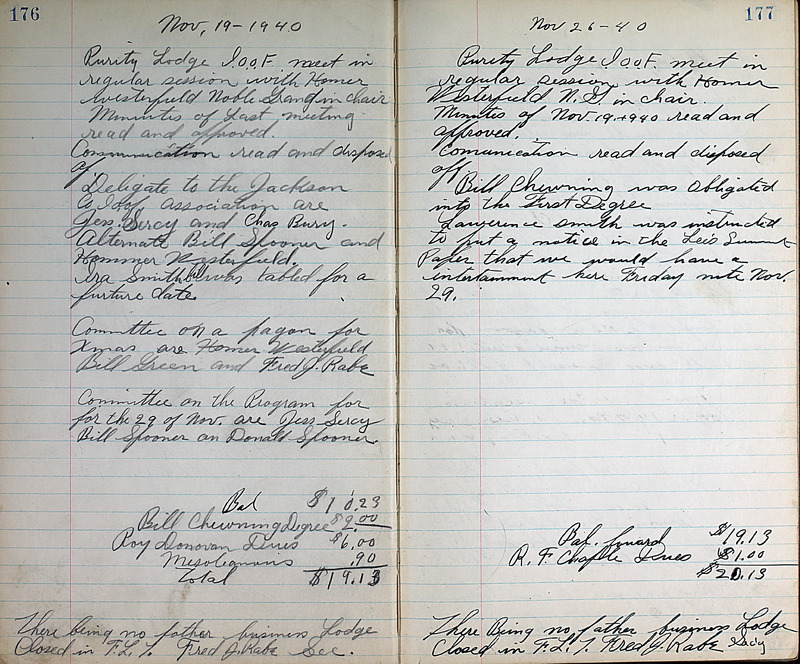 176
Nov, 19-1940
Purity Lodge I.O.O.F. meet in
regular session with Homer
Westerfield Noble Grand in chair
Minutes of Last meeting
read and approved.
Communication read and disposed
of
Deligate to the Jackson
Co IOOF association are
Jess. Sercy and Chas Bury.
Alternate Bill Spooner and
Hommer Westerfield.
Ira Smith Bill was tabled for a
furture date.
Committee on a pagon for
Xmas are Homer Westerfield
Bill Green and Fred J. Rabe
Committee on the Program for
for the 29 of Nov. are Jess Sercy
Bill Spooner an Donald Spooner.
Bal $10.23
Bill Chewning Degree $2.00
Roy Donovan Dues $6.00
Mesolianous .90
Total $19.13
There being no father business Lodge
Closed in F.L.T. Fred J. Rabe Sec.
177
Nov 26-40
Purity Lodge I.O.O.F. meet in
regular session with Homer
Westerfield N.G. in chair.
Minutes of Nov 19, 1940 read and
approved.
Comunication read and disposed
off
Bill Chewning was obligated
into the First Degree
Lawerence Smith was instructed
to put a notice in the Lee's Summit
Paper that we would have a
entertainment here Friday nite Nov.
29.
Bal. $19.13
R. F. Chapple Dues $1.00
$20.13
There Being no father business Lodge
Closed in F.L.T. Fred J. Rabe Secy